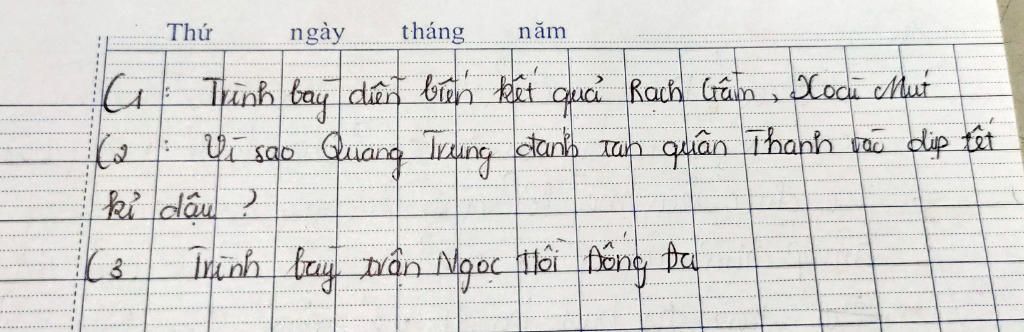 Thứ ngày tháng năm
C1 : Trình bày diễn biến kết quả Rạch Gầm, Xoài Mút
C2 : Vì sao Quang Trung đánh tan quân Thanh vào dịp tết
kỉ dậu ?
C3 Trình bày trận Ngọc Hồi Đống Đa